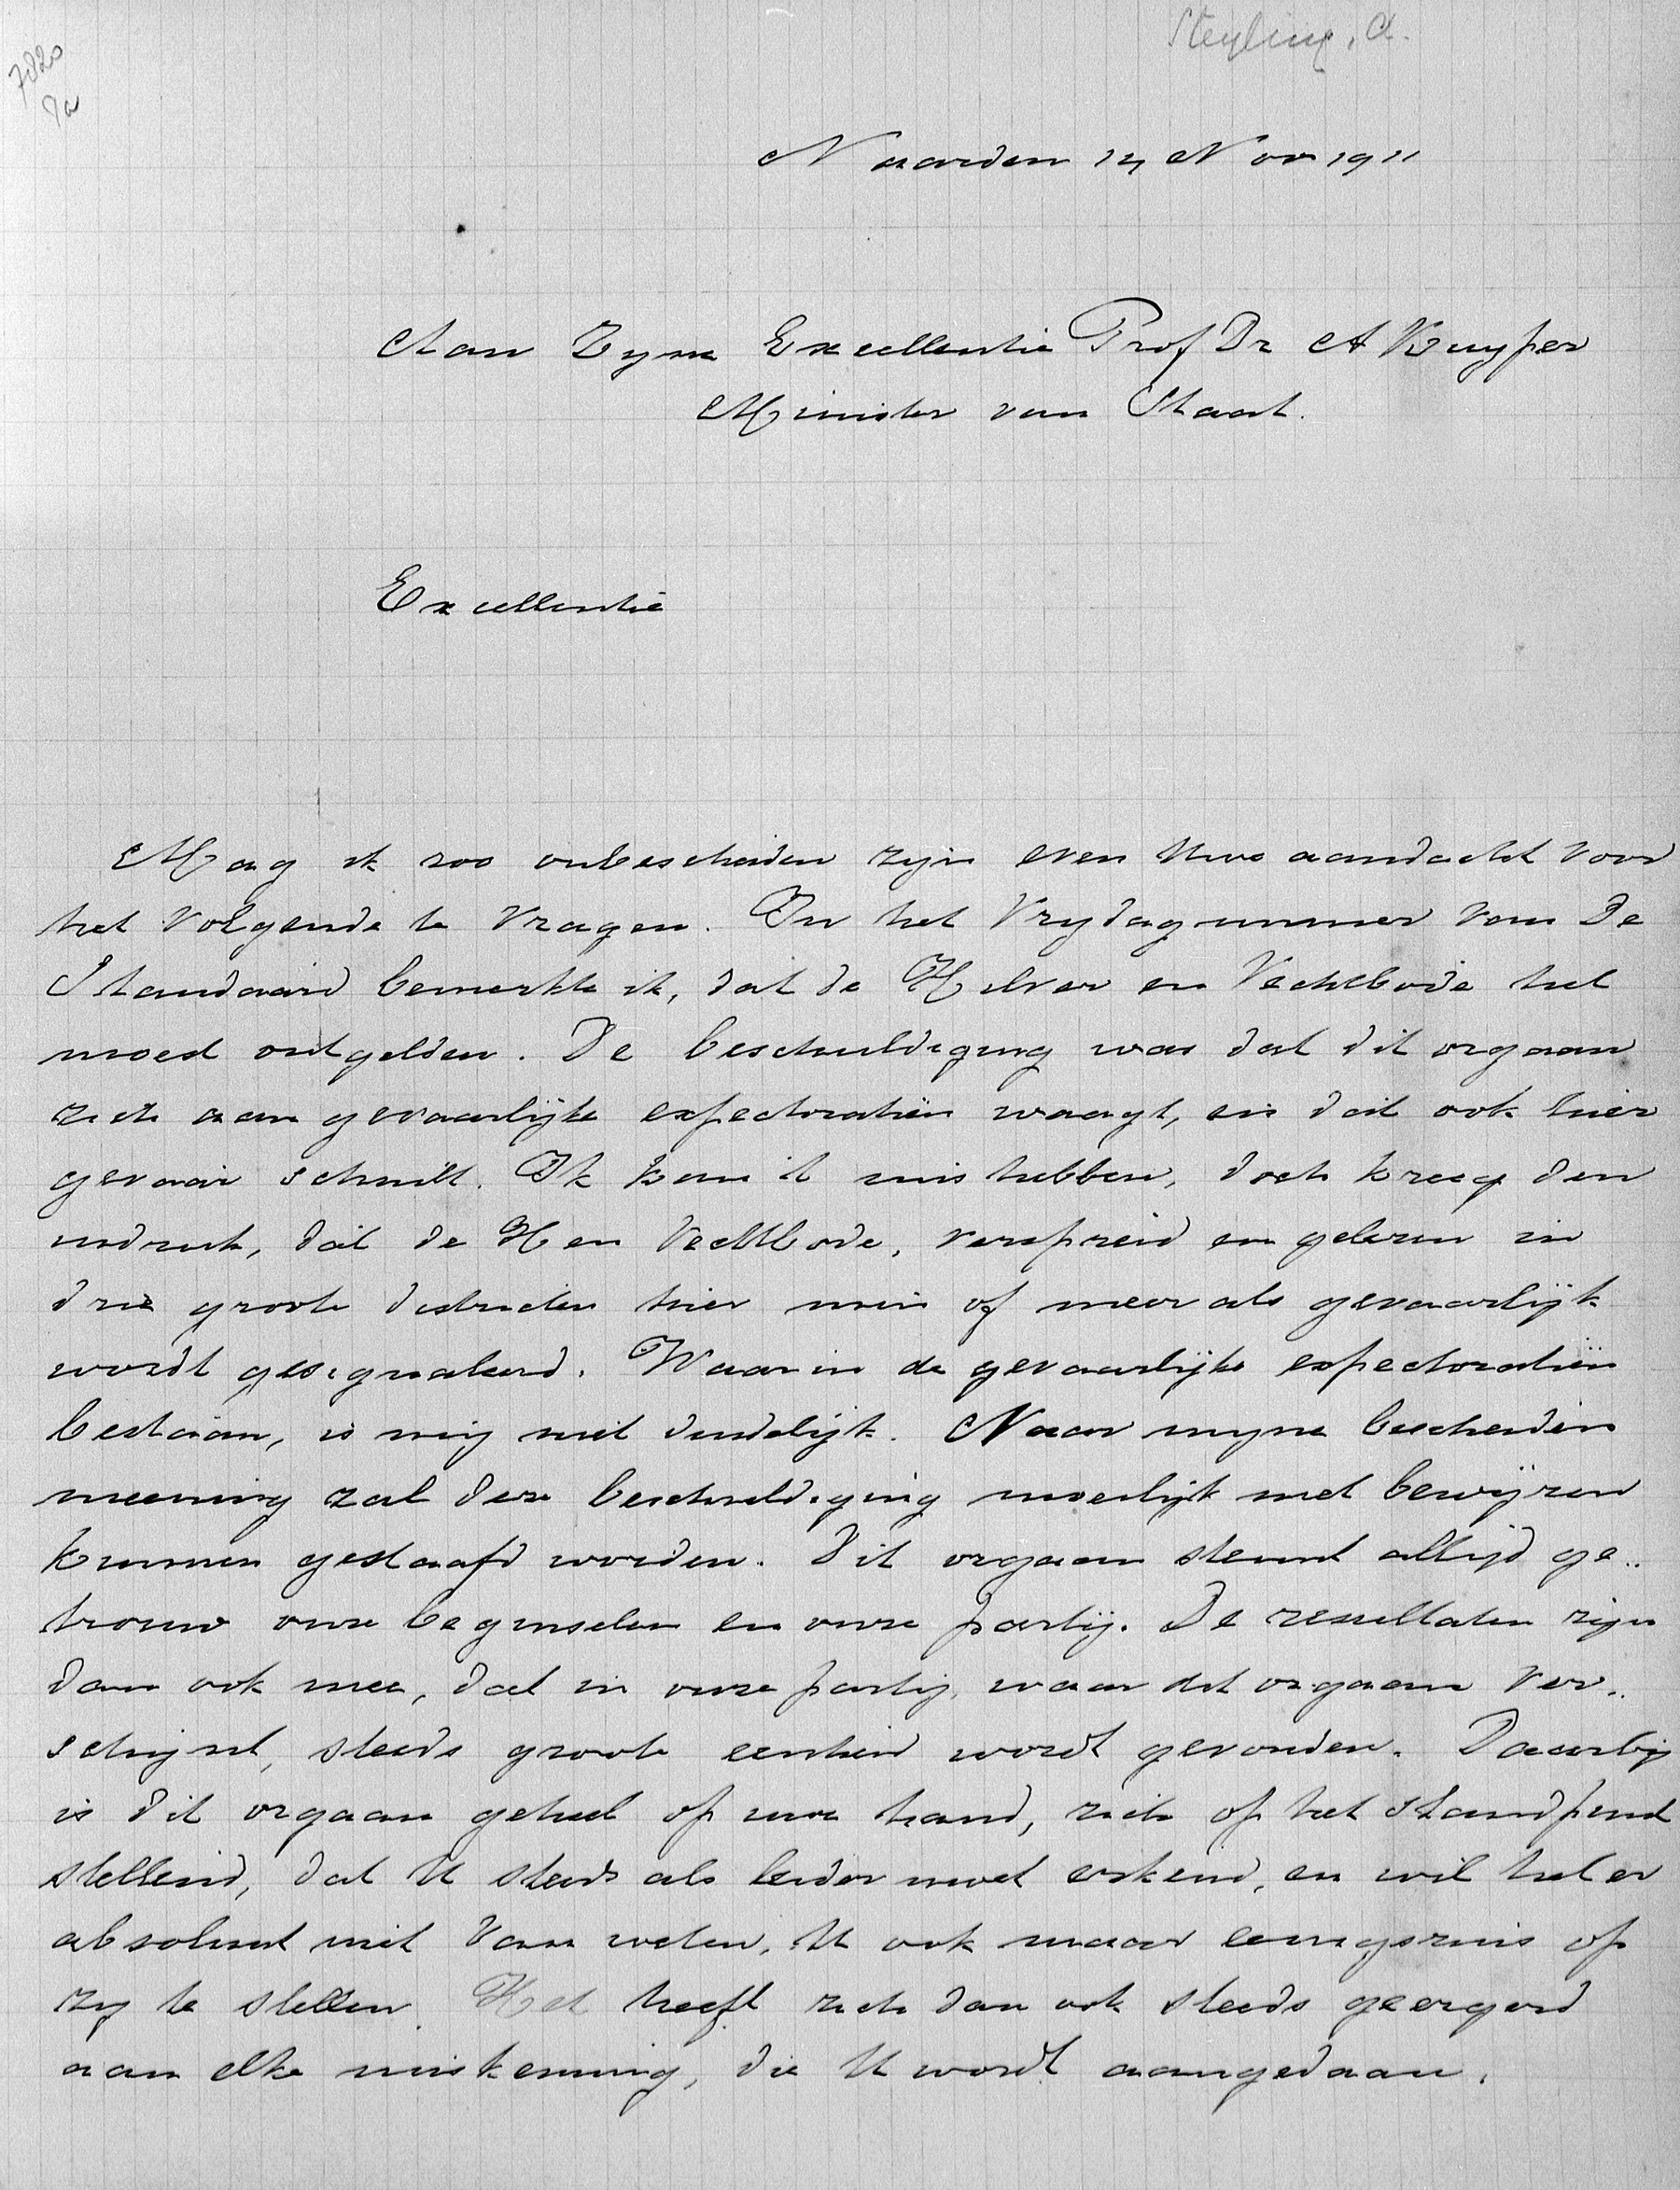 Steyling, A.
7820
7a
Naarden 14 Nov 1911
Aan Zyne Excellentie Prof Dr A Kuyper
Minister van Staat.
Excellentie
Mag ik zoo onbescheiden zijn even Uwe aandacht voor
het volgende te vragen. In het Vrydagnummer van De
Standaard bemerkte ik, dat de Hilver en Vechtbode het
moest ontgelden. De beschuldiging was dat dit orgaan
zich aan gevaarlijke expectoratiën waagt, en dat ook hier
gevaar schuilt. Ik kan 't mis hebben, doch kreeg den
indruk, dat de H en Vechtbode, verspreid en gelezen in
drie groote districten hier min of meer als gevaarlijk
wordt gesignaleerd. Waarin de gevaarlijke expectoratiën
bestaan, is mij niet duidelijk. Naar myne bescheiden
meening zal deze beschuldiging moeilijk met bewijzen
kunnen gestaafd worden. Dit orgaan steunt altijd ge..
trouw onze beginselen en onze partij. De resultaten zijn
dan ook mee, dat in onze partij, waar dit orgaan ver..
schijnt, steeds groote eenheid wordt gevonden. Daarbij
is dit orgaan geheel op uwe hand, zich op het standpunt
stellend, dat U steeds als leider moet erkend, en wil het er
absoluut niet van weten, U ook maar eenigszins op
zy te stellen. Het heeft zich dan ook steeds geergerd
aan elke miskenning, die U wordt aangedaan.